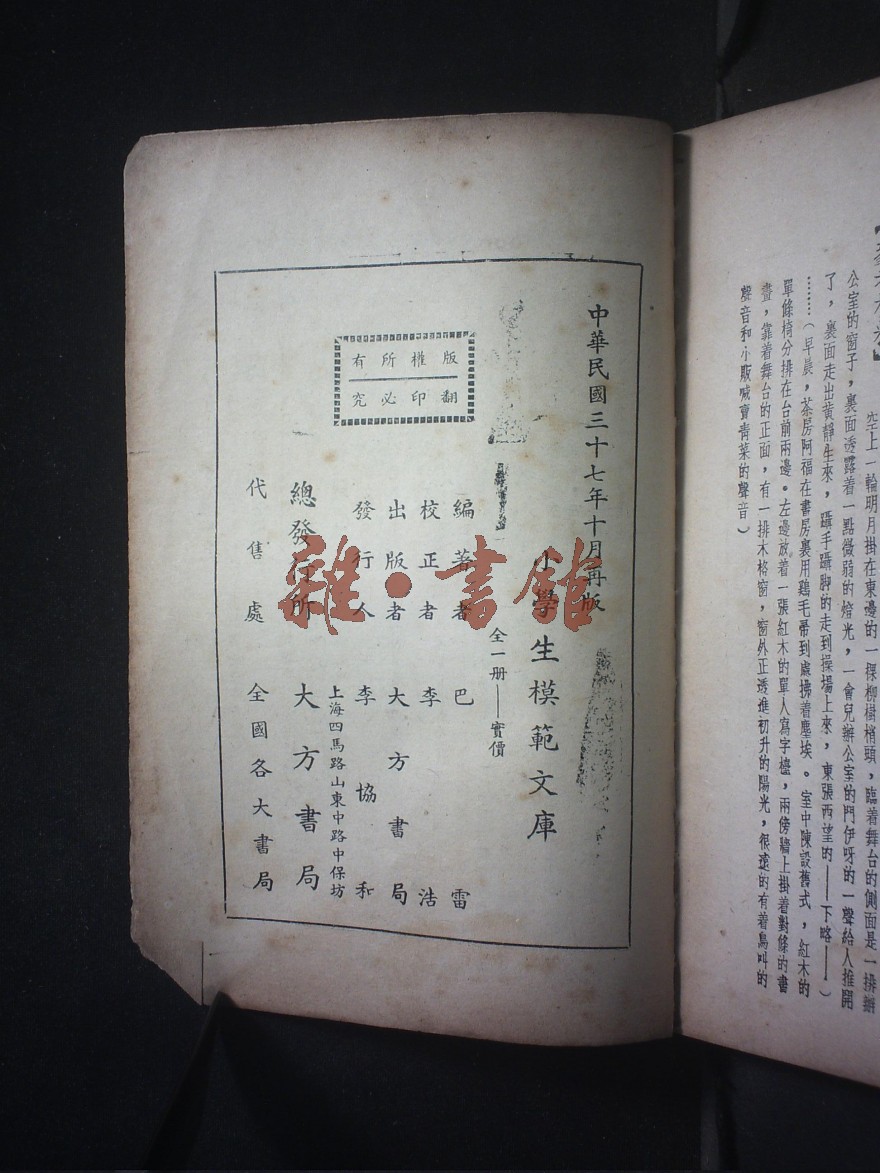 空上一輪明月掛在東邊的一棵柳樹梢頭，臨着舞台的側面是一排辦
公室的窗子，裏面透露着一點微弱的燈光，一會兒辦公室的門伊呀的一聲給人推開
了，裏面走出黃靜生來，躡手躡脚的走到操場上來，東張西望的——下略——）
……（早晨，茶房阿福在書房裏用鷄毛帚到處拂着塵埃。室中陳設舊式，紅木的
單條椅分排在台前兩邊。左邊放着一張紅木的單人寫字檯，兩傍牆上掛着對條的書
畫，靠着舞台的正面，有一排木格窗，窗外正透進初升的陽光，很遠的有着鳥叫的
聲音和小販喊賣靑菜的聲音）
中華民國三十七年十月再版
小學生模範文庫
全一册——實價
編著者 巴雷
校正者 李浩
出版者 大方書局
發行人 李協和
上海四馬路山東中路中保坊
總發行所 大方書局
代售處 全國各大書局
版權所有
翻印必究
雜·書館